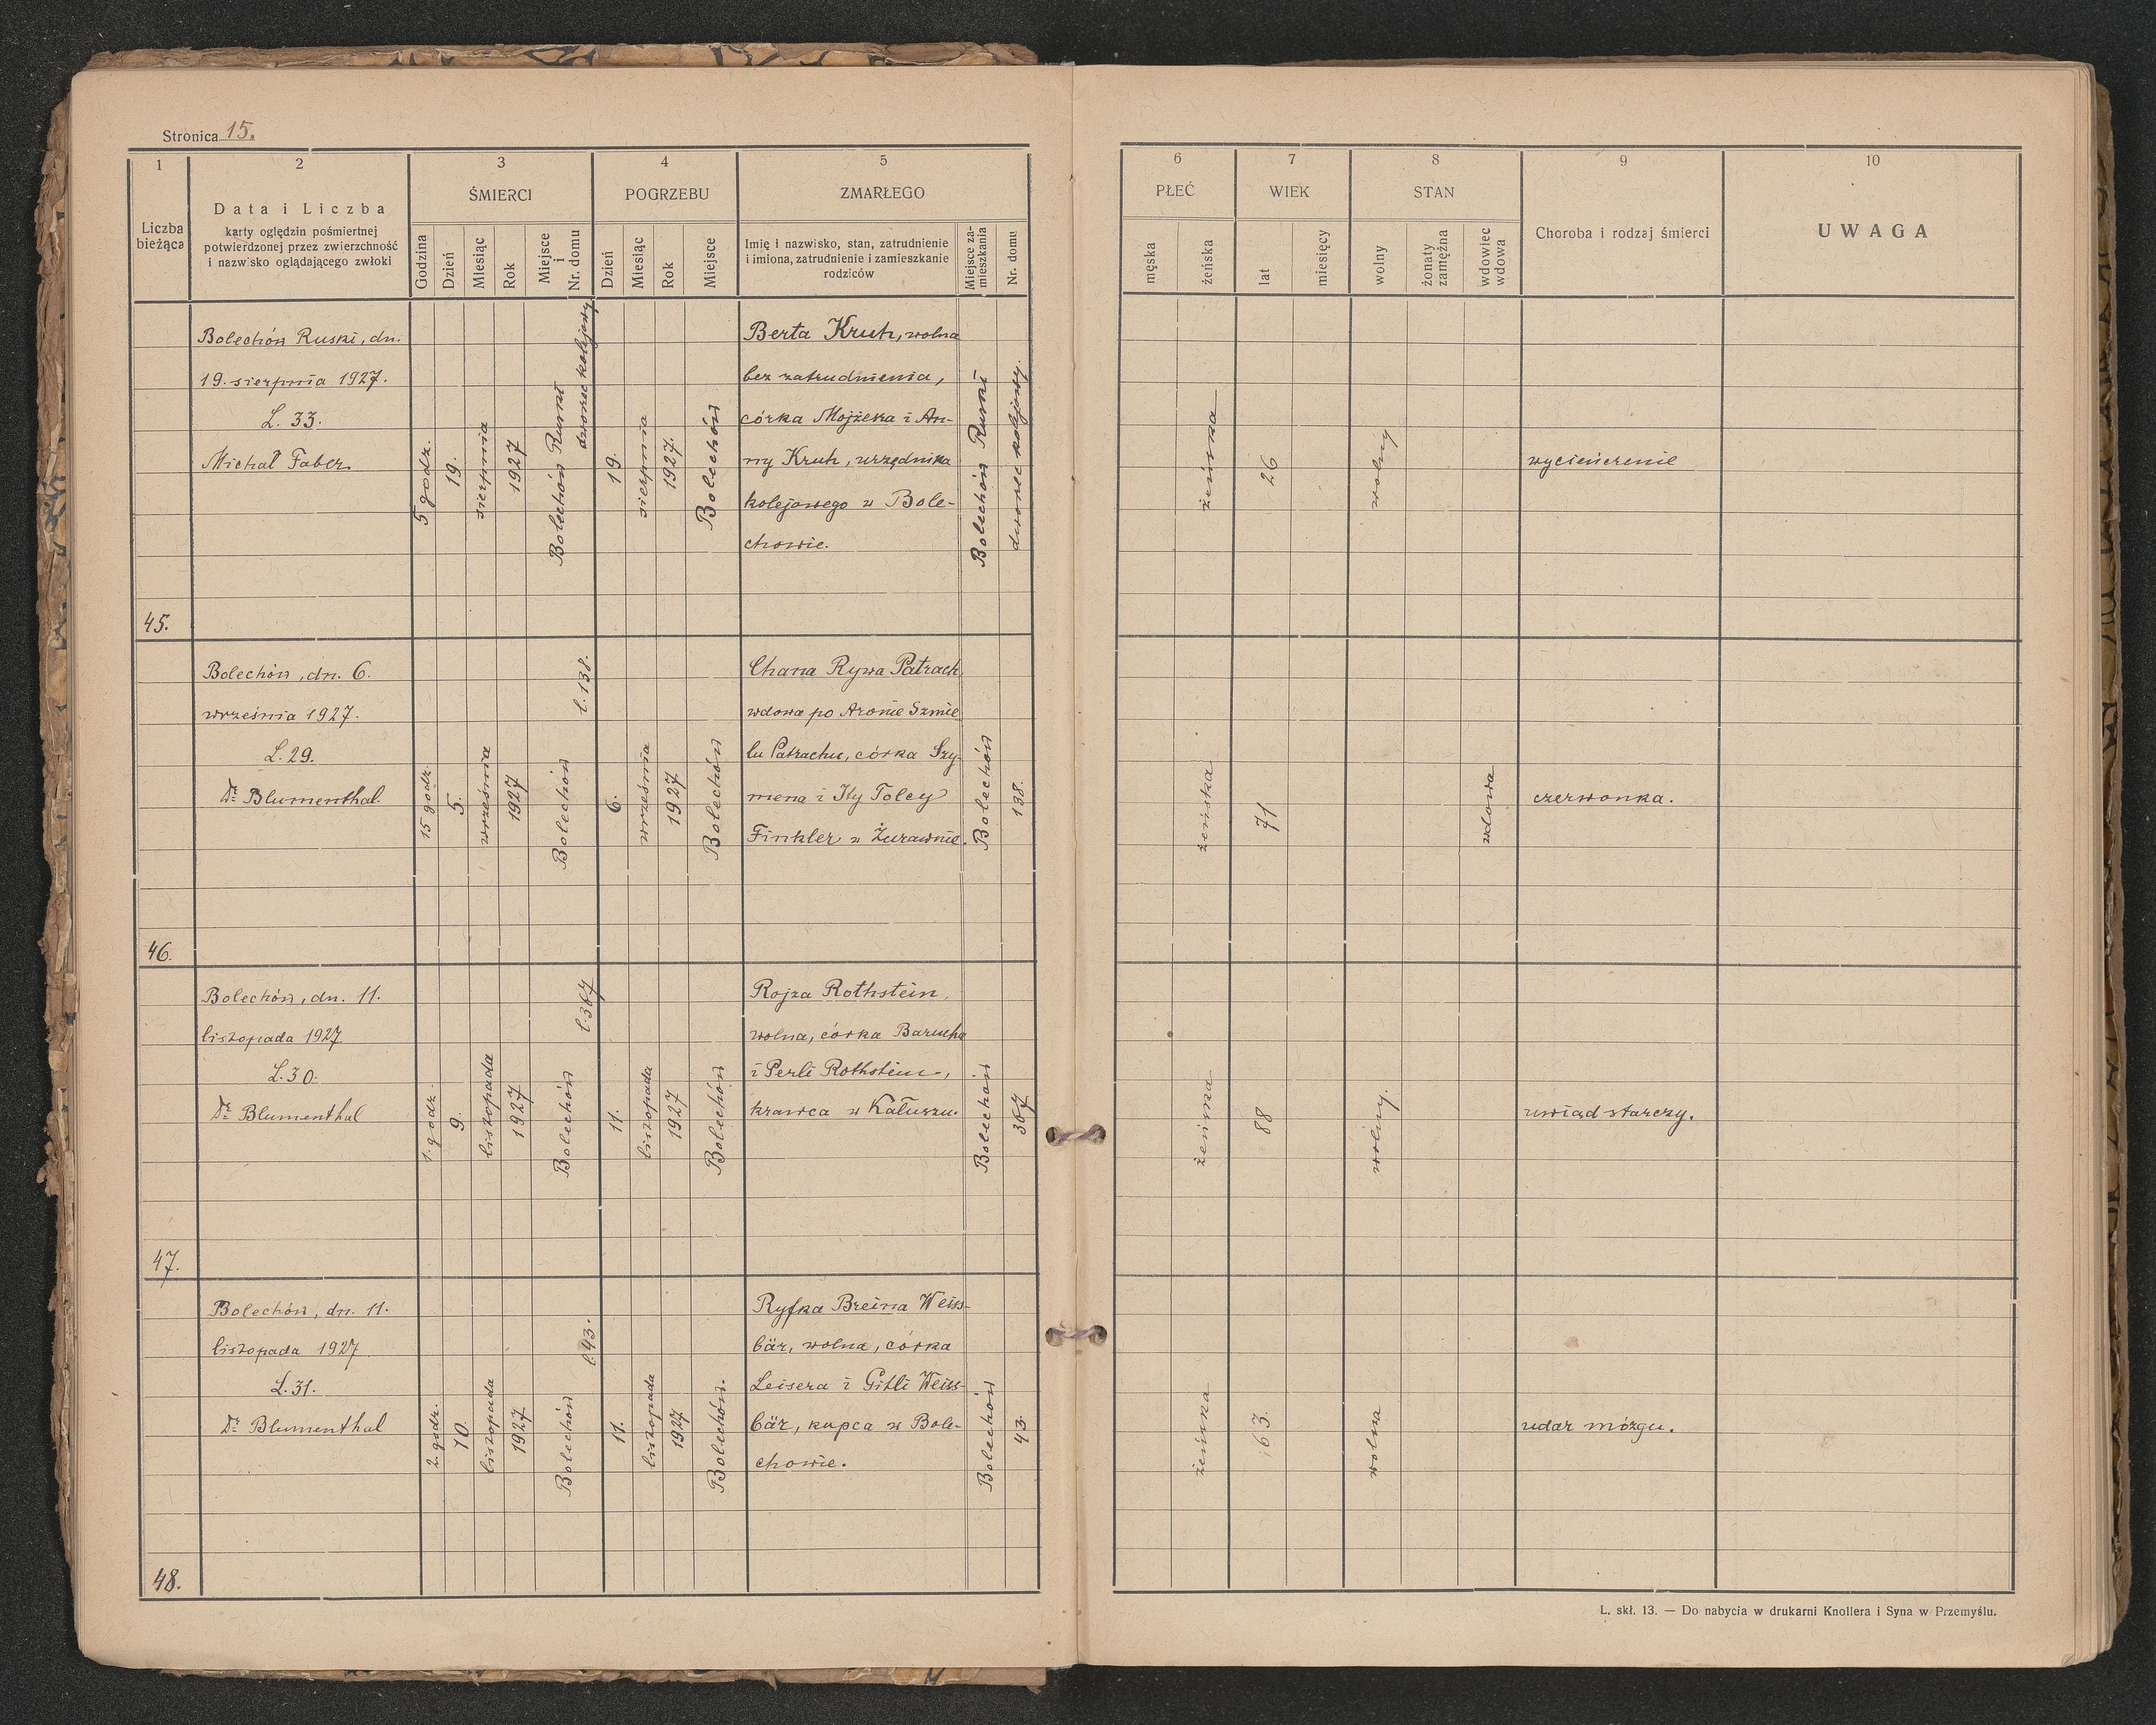 Stronica 15.
1
2
3
4
5
Liczba
bieżąca
Data i Liczba
karty oględzin pośmiertnej
potwierdzonej przez zwierzchność
i nazwisko oglądającego zwłoki
ŚMIERCI
Godzina
Dzień
Miesiąc
Rok
Miejsce
i
Nr. domu
POGRZEBU
Dzień
Miesiąc
Rok
Miejsce
ZMARŁEGO
Imię i nazwisko, stan, zatrudnienie
i imiona, zatrudnienie i zamieszkanie
rodziców
Miejsce za-
mieszkania
Nr. domu
6
7
8
9
10
PŁEĆ
męska
żeńska
WIEK
lat
miesięcy
STAN
wolny
żonaty
zamężna
wdowiec
wdowa
Choroba i rodzaj śmierci
UWAGA
45.
Bolechów Ruski, dn.
19. sierpnia 1927.
L. 33.
Michał Faber
5 godz.
19.
sierpnia
1927
Bolechów Ruski
dworzec kolejowy
19.
sierpnia
1927.
Bolechów
Berta Kruh, wolna
bez zatrudnienia,
córka Mojżesza i An-
ny Kruh, urzędnika
kolejowego w Bole-
chowie.
Bolechów Ruski
dworzec kolejowy.
żeńska
26
wolny
wycieńczenie
46.
Bolechów, dn. 6.
września 1927.
L. 29.
Dr. Blumenthal.
15 godz.
5.
września
1927
Bolechów
l. 138.
6.
września
1927
Bolechów
Chana Rywa Patrach
wdowa po Aronie Szmie
lu Patrachu, córka Szy-
mena i Ity Tolcy
Finkler w Żurawnie.
Bolechów
138.
żeńska
71
wdowa
czerwonka.
47.
Bolechów, dn. 11.
listopada 1927
L. 30.
Dr. Blumenthal
1. godz.
9.
listopada
1927
Bolechów
l. 367
11.
listopada
1927
Bolechów
Rojza Rothstein,
wolna, córka Barucha
i Perli Rothstein,
krawca w Kałuszu.
Bolechów
367
żeńska
88
wolny.
uwiąd starczy.
48.
Bolechów, dn. 11.
listopada 1927
L. 31.
Dr. Blumenthal
2. godz.
10.
listopada
1927
Bolechów
l. 43.
11.
listopada
1927
Bolechów.
Ryfka Breina Weiss-
bär, wolna, córka
Leisera i Gitli Weiss-
bär, kupca w Bole-
chowie.
Bolechów
43.
żeńska
63.
wolna
udar mózgu.
L. skł. 13. — Do nabycia w drukarni Knollera i Syna w Przemyślu.